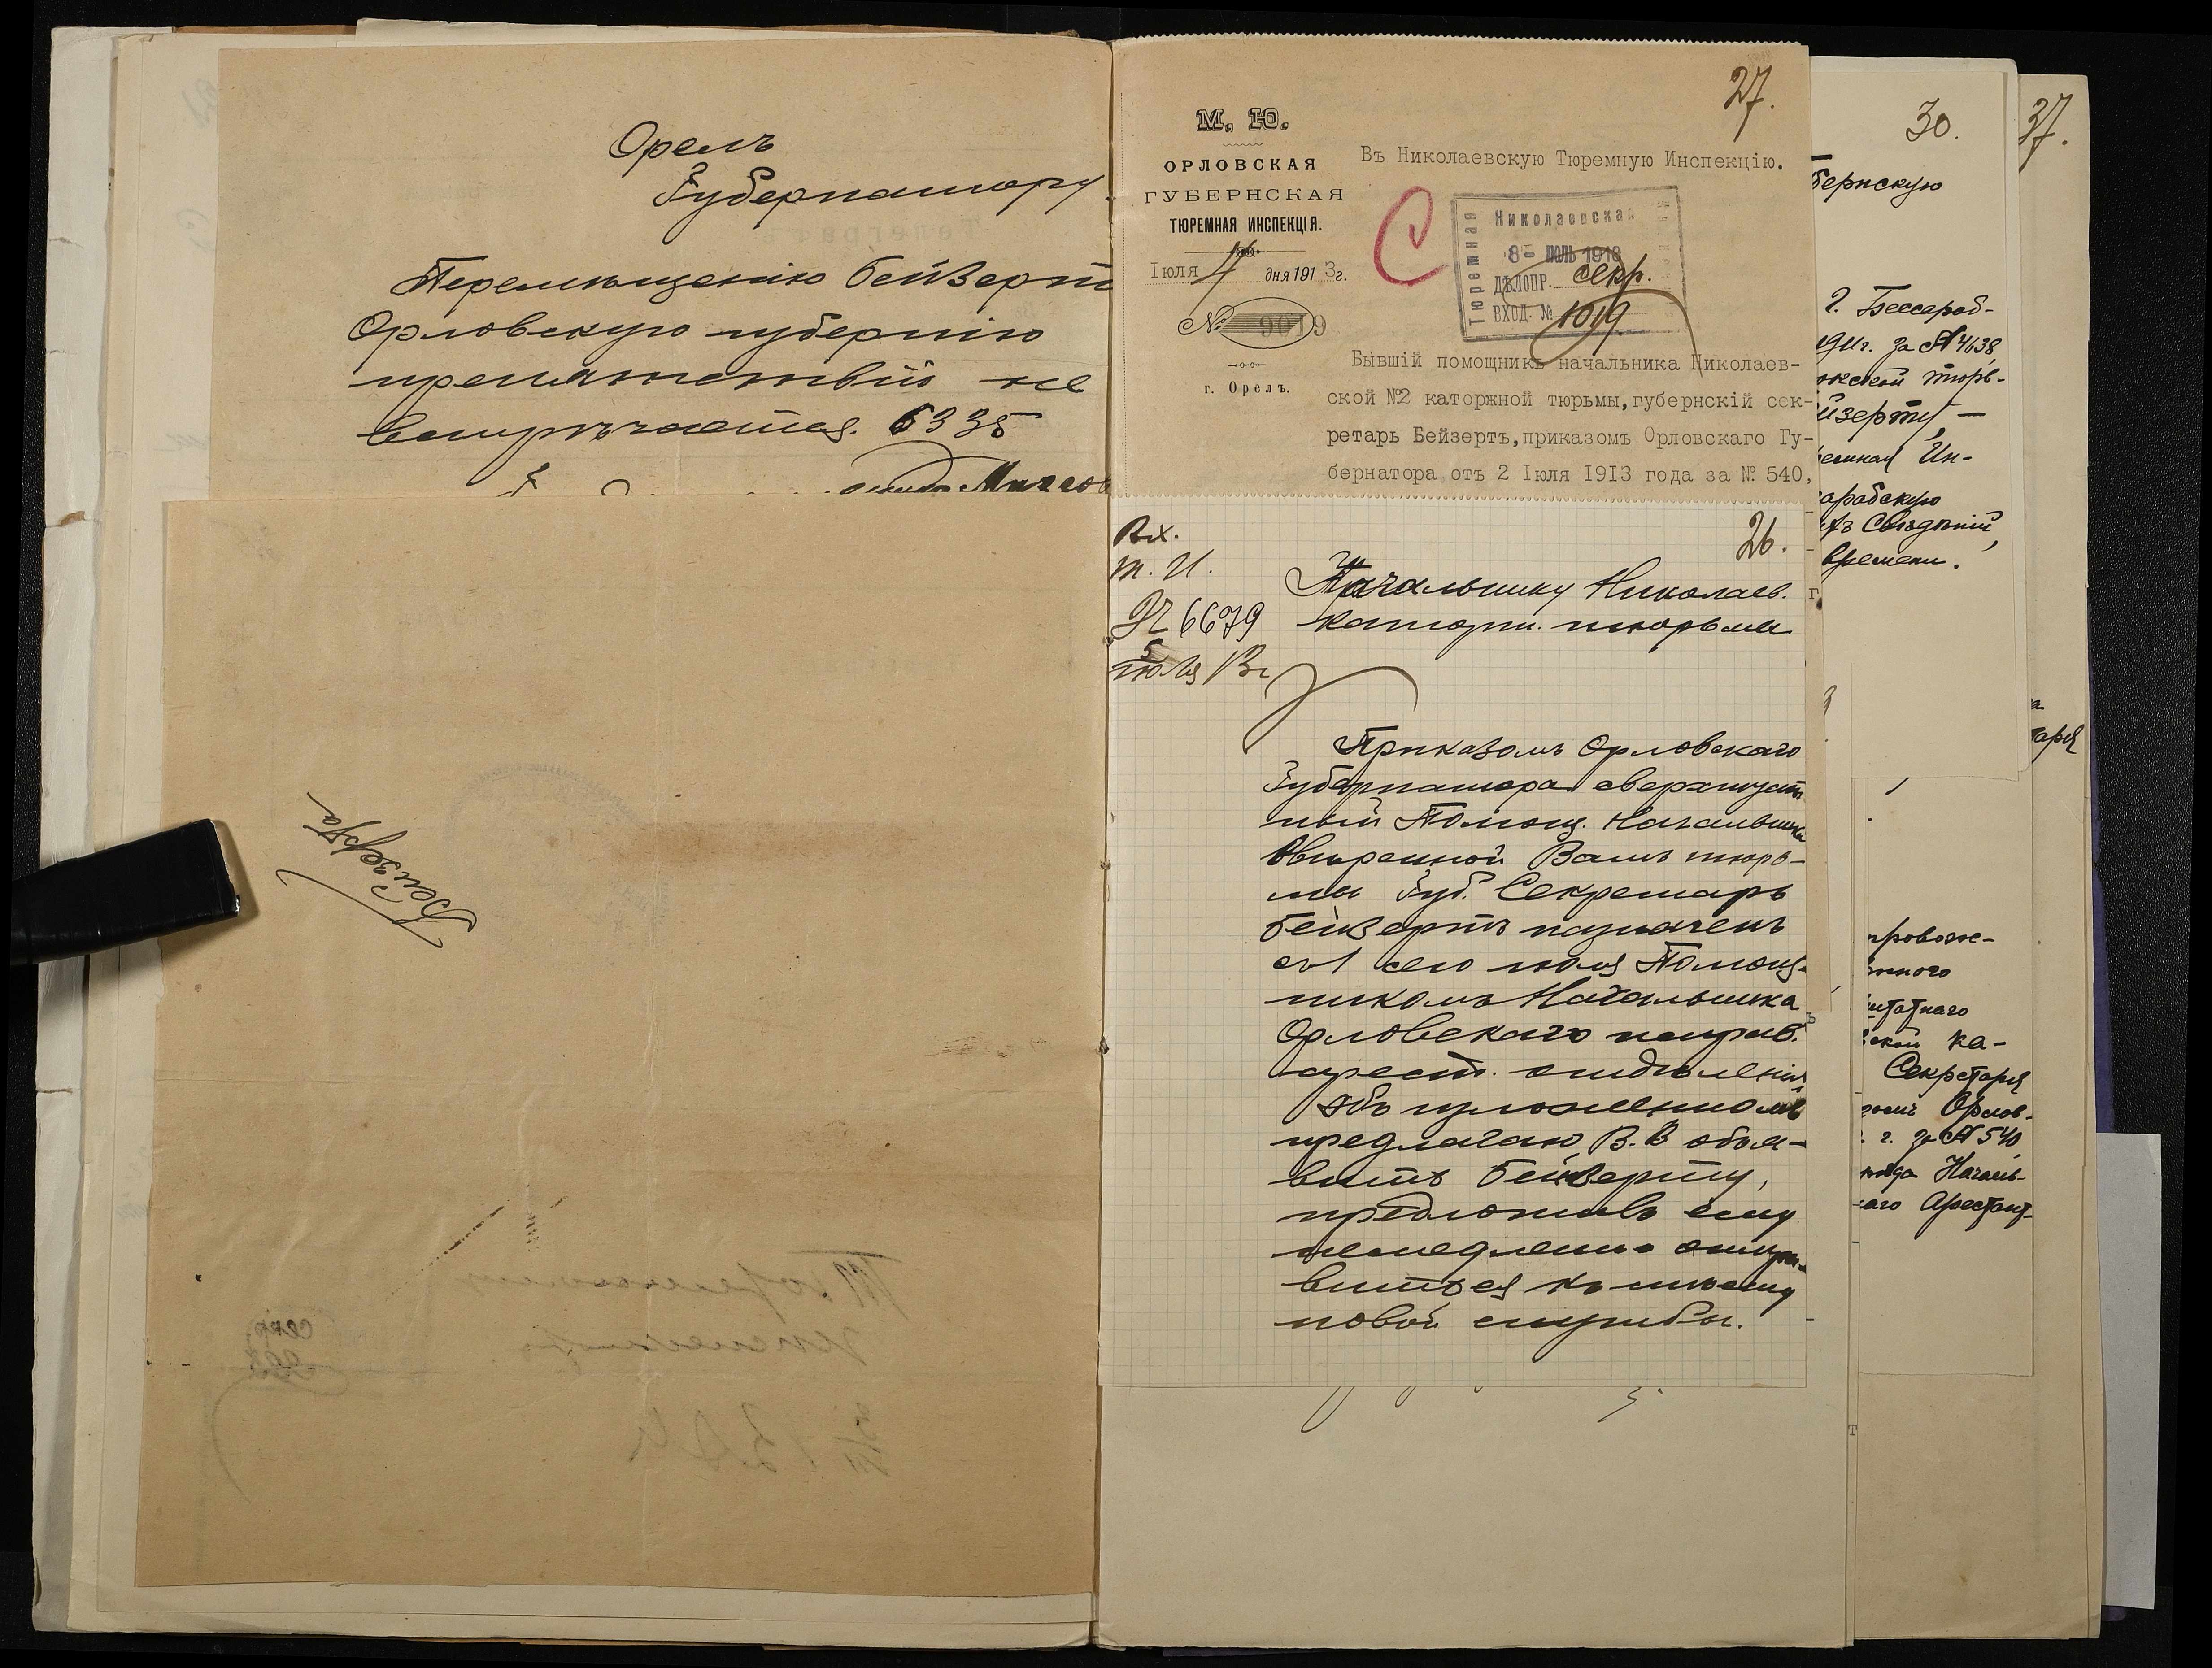 Орелъ
Губернатору
Перемѣщенію Бейзерт
Орловскую губернію
препятствій не
встрѣчается. 6335
27.
М. Ю.
ОРЛОВСКАЯ
ГУБЕРНСКАЯ
ТЮРЕМНАЯ ИНСПЕКЦІЯ.
Іюля 4 дня 1913г.
№ 9019
г. Орелъ.
Въ Николаевскую Тюремную Инспекцію.
С
Тюремная
Николаевская
8- ІЮЛЬ 1913
ДѢЛОПР. секр.
ВХОД. № 1019
Бывшій помощникъ начальника Николаев-
ской №2 каторжной тюрьмы,губернскій сек-
ретарь Бейзертъ,приказомъ Орловскаго Гу-
бернатора отъ 2 Іюля 1913 года за № 540,
26.
Вх.
т. И.
№ 6679
5
іюля 13г
Начальнику Николаев.
каторжн. тюрьмы
Приказомъ Орловскаго
Губернатора сверхштат
ный Помощ. Начальника
ввѣренной Вамъ тюрь-
мы Губ. Секретарь
Бейзертъ назначенъ
съ 1 сего іюля Помощ-
никомъ Начальника
Орловскаго исправ.
арест. отдѣленія
Объ изложенномъ
предлагаю В. В объя-
вить Бейзерту,
предложивъ ему
немедленно отпра-
виться къ мѣсту
новой службы.
Бейзерта
30.
бернскую
г. Бессараб-
за № 4638
ской тюрь-
йзерту, —
ремная Ин-
сарабскую
свѣдѣній,
времени.
37.
аря
провож-
нного
штатнаго
ской ка-
Секретаря
Орлов-
г. за № 540
Началь-
каго Арестант-